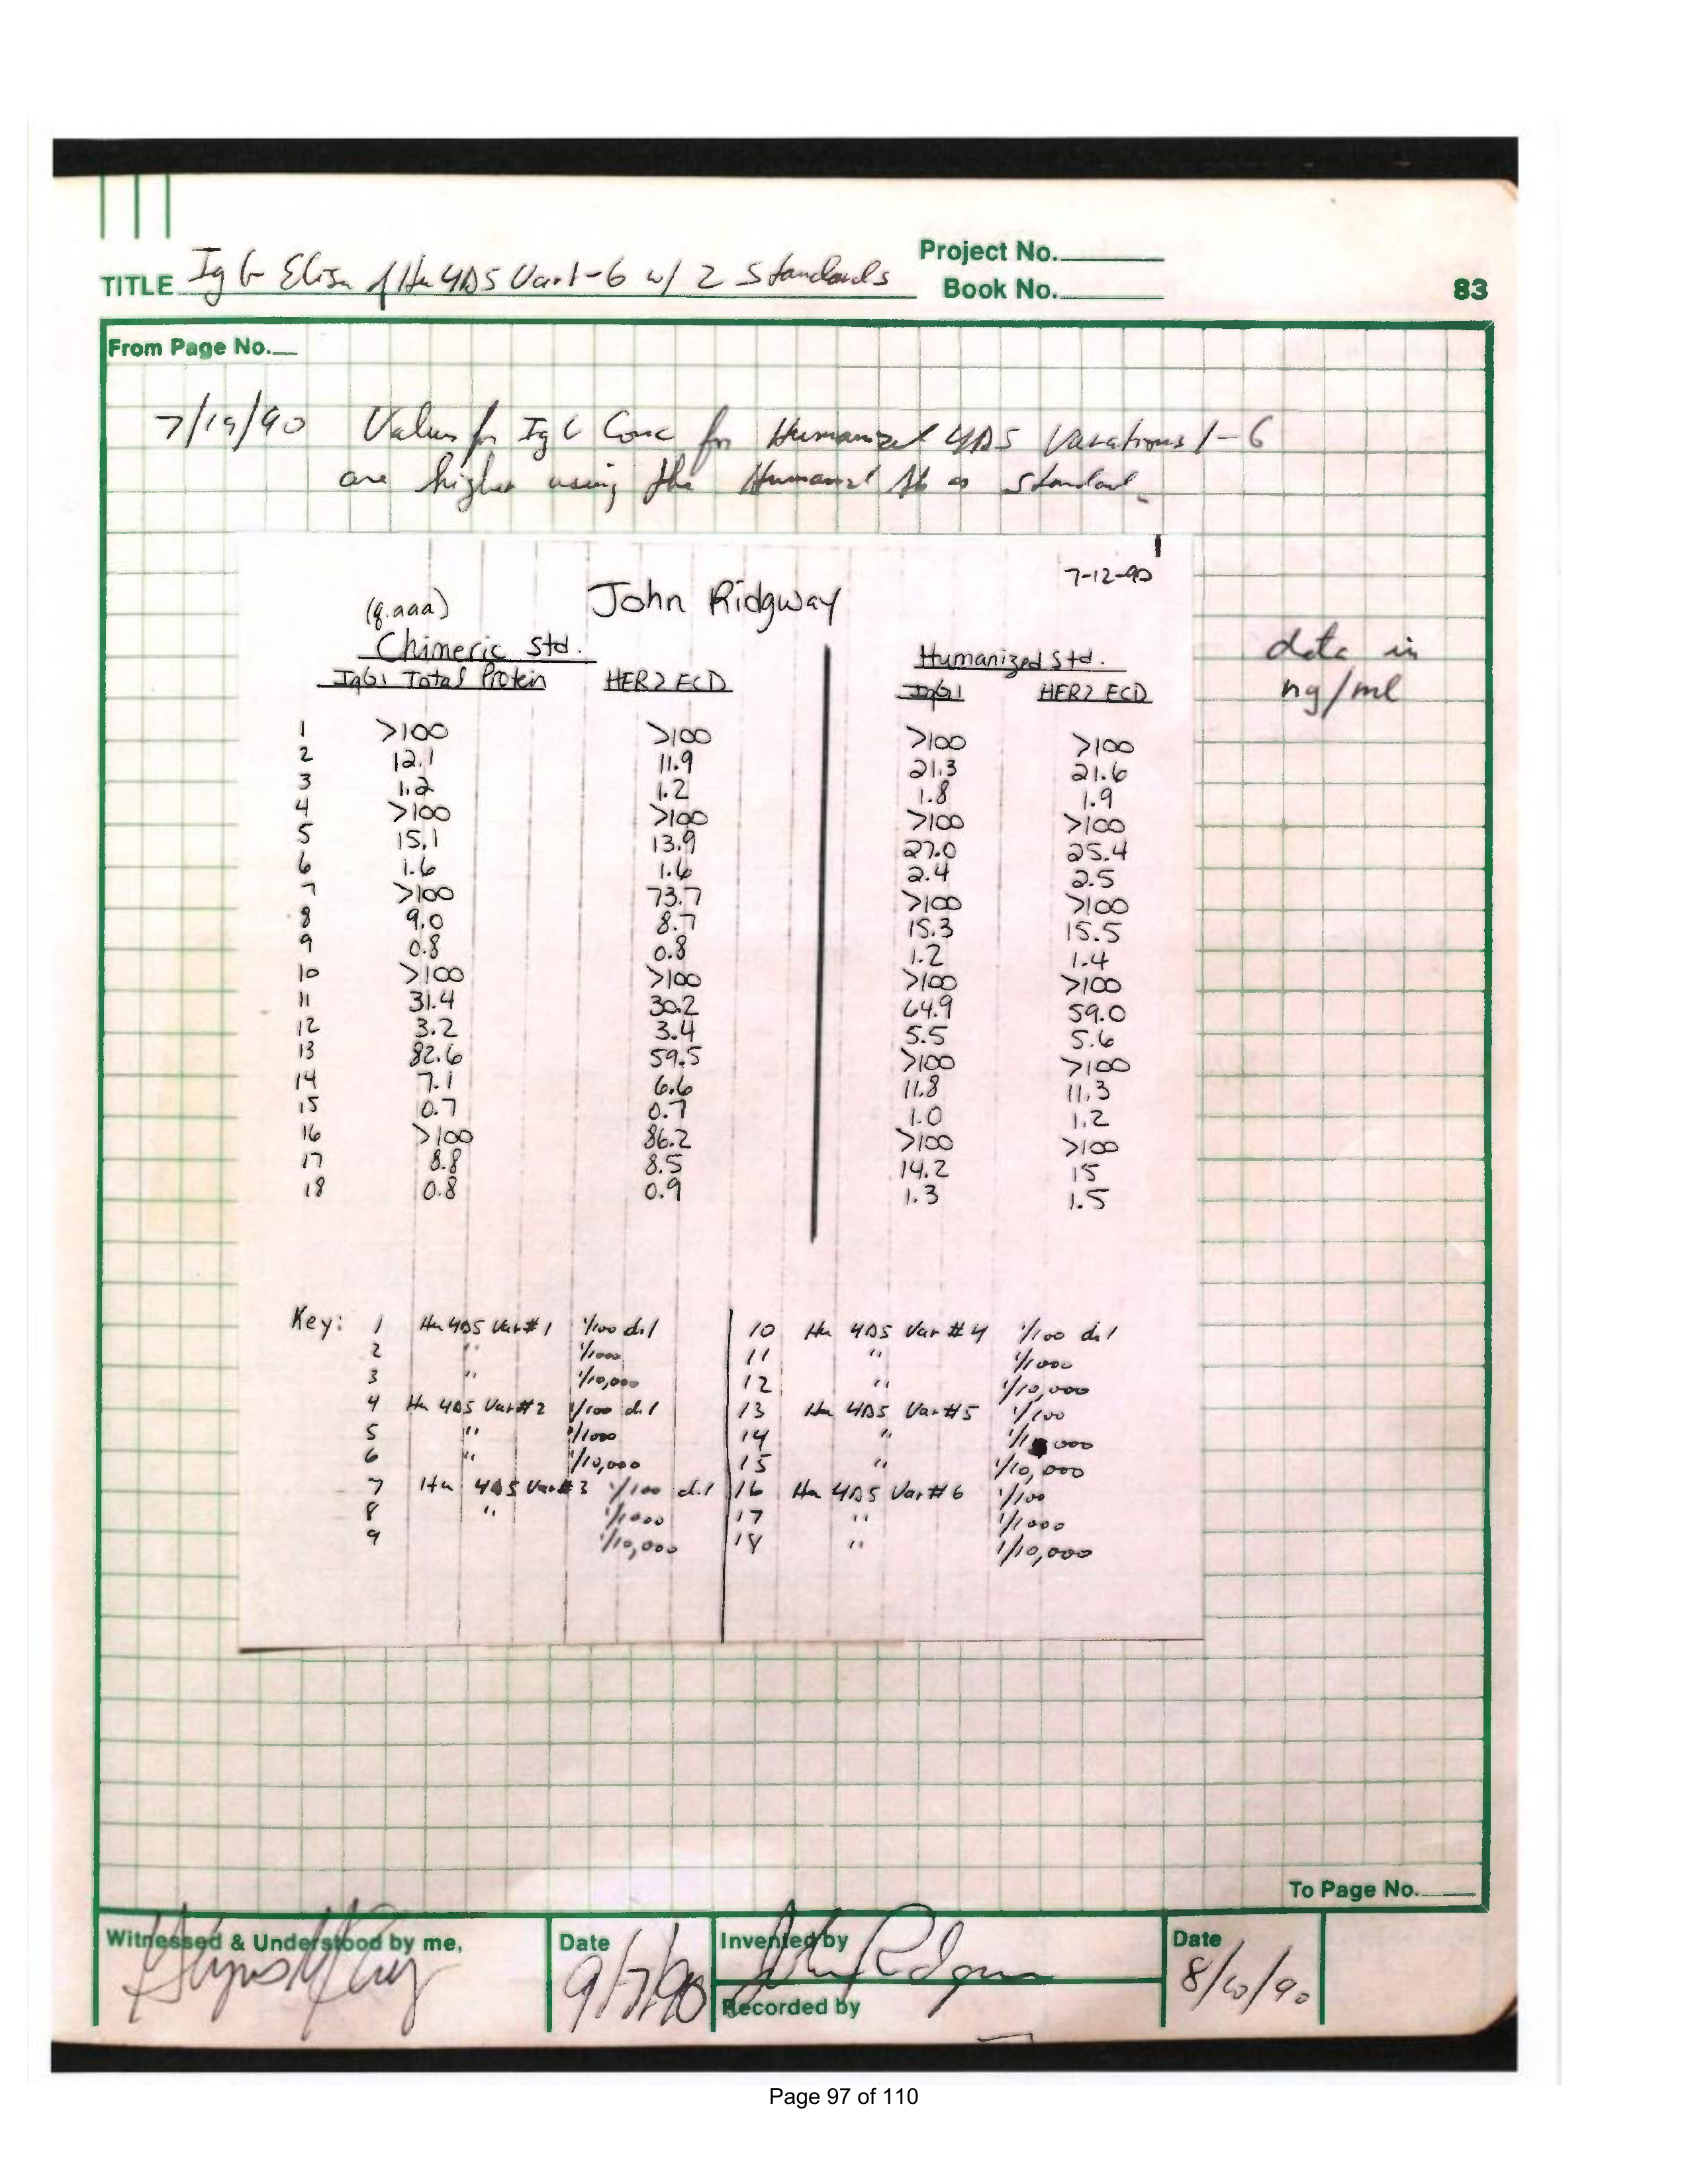 Project No.
TITLE IgG Elisa of Hu 4D5 Var 1-6 w/ 2 Standards
Book No.
83
From Page No.
7/19/90 Values for IgG Conc for Humanized 4D5 Variations 1-6
are higher using the Humanized Ab as standard.
7-12-90
(q.aaa) John Ridgway
Chimeric Std. Humanized Std.
IgG1 Total Protein HER2 ECD IgG1 HER2 ECD
data in
ng/ml
1 >100 >100 >100 >100
2 12.1 11.9 21.3 21.6
3 1.2 1.2 1.8 1.9
4 >100 >100 >100 >100
5 15.1 13.9 27.0 25.4
6 1.6 1.6 2.4 2.5
7 >100 73.7 >100 >100
8 9.0 8.7 15.3 15.5
9 0.8 0.8 1.2 1.4
10 >100 >100 >100 >100
11 31.4 30.2 64.9 59.0
12 3.2 3.4 5.5 5.6
13 82.6 59.5 >100 >100
14 7.1 6.6 11.8 11.3
15 0.7 0.7 1.0 1.2
16 >100 86.2 >100 >100
17 8.8 8.5 14.2 15
18 0.8 0.9 1.3 1.5
Key: 1 Hu 4D5 Var #1 1/100 dil 10 Hu 4D5 Var #4 1/100 dil
2 " 1/1000 11 " 1/1000
3 " 1/10,000 12 " 1/10,000
4 Hu 4D5 Var #2 1/100 dil 13 Hu 4D5 Var #5 1/100
5 " 1/1000 14 " 1/1000
6 " 1/10,000 15 " 1/10,000
7 Hu 4D5 Var #3 1/100 dil 16 Hu 4D5 Var #6 1/100
8 " 1/1000 17 " 1/1000
9 1/10,000 18 " 1/10,000
To Page No.
Witnessed & Understood by me,
Date
9/7/90
Invented by
John Ridgway
Recorded by
Date
Page 97 of 110